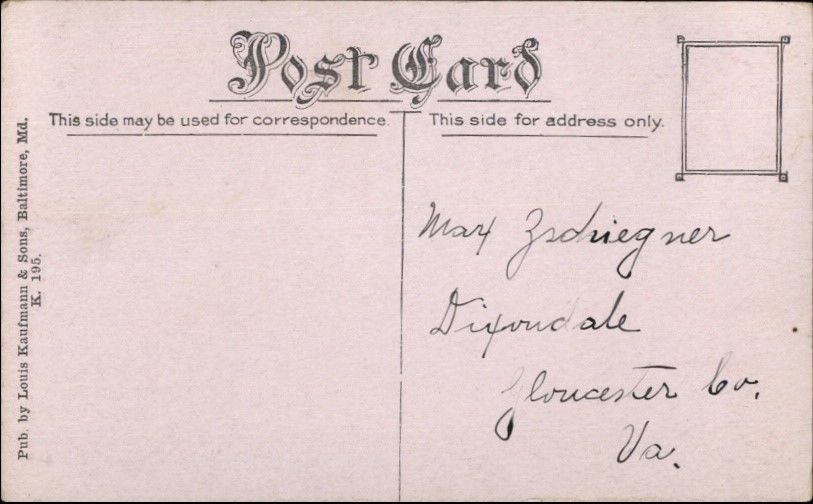 Post Card
This side may be used for correspondence.
This side for address only.
Max Zschiegner
Dixondale
Gloucester Co.
Va.
Pub. by Louis Kaufmann & Sons, Baltimore, Md.
K. 195.